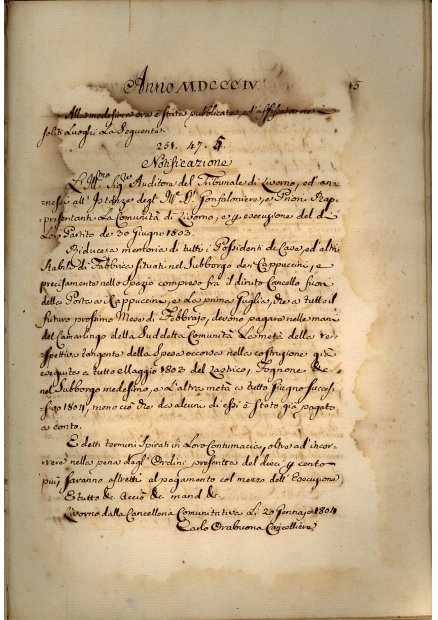 Anno MDCCCIV.
15
Alla medesima ora è stata pubblicata, ed affissa ne i
soliti Luoghi La Seguente
251. 47. 5
Notificazione
L'Ill.mo Sig.re Auditore del Tribunale di Livorno, ed an-
nessi all' Istanze degl' Ill.i SS.i Gonfaloniere, e Priori Rap-
presentanti La Comunità di Livorno, e p esecuzione del di
Loro Partito de' 30 Giugno 1803.
Riduce a memoria di tutti i Possidenti di Case, ed altri
Stabili di Fabbrica situati nel Subborgo dei Cappuccini, e
precisamente nello Spazio compreso fra il diruto Cancello fuori
della Porta a i Cappuccini, e La prima Guglia, che a tutto il
futuro prossimo Mese di Febbrajo, devono pagare nelle mani
del Camarlingo della Suddetta Comunità La metà della re-
spettiva tangente della Spesa occorsa nella costruzione già
eseguita a tutto Maggio 1803 del Lastrico, Fognone &c.
nel Subborgo medesimo, e L'altra metà a tutto Giugno succes-
sivo 1804, meno ciò che da alcuni di essi è stato già pagato
a conto.
E detti termini spirati in Loro Contumacia, oltre ad incor-
rere nella pena dagl' Ordini prescritta del dieci p cento
più saranno astretti al pagamento col mezzo dell' Esecuzione
E tutto &c. Acciò &c. mand &c.
Livorno dalla Cancelleria Comunitativa Li 20 Gennajo 1804
Carlo Orabuona Cancelliere